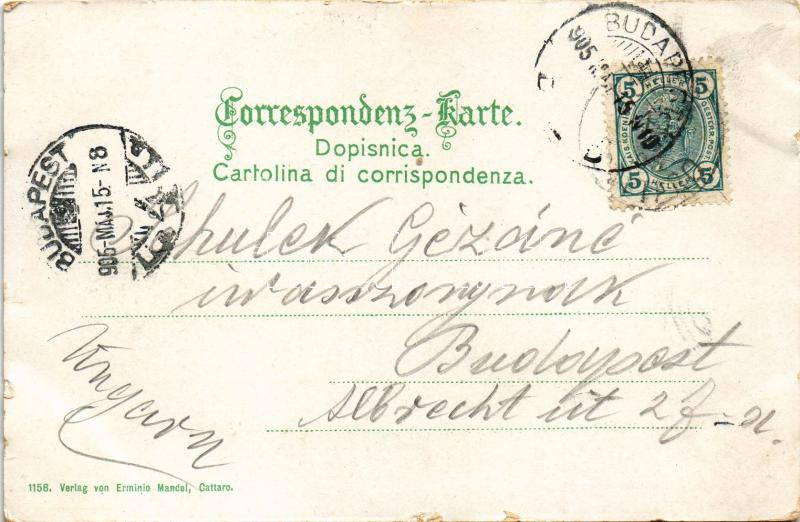 Correspondenz-Karte.
Dopisnica.
Cartolina di corrispondenza.
BUDAPEST
905 MAJ. 15. N8
BUDAP
905
5 HELLER 5
KAIS. KOENIGL. OESTERR. POST.
5 HELLER 5
Schulek Gézáné
úrasszonynak
Budapest
Albrecht út 27-a.
Ungarn
1158. Verlag von Erminio Mandel, Cattaro.